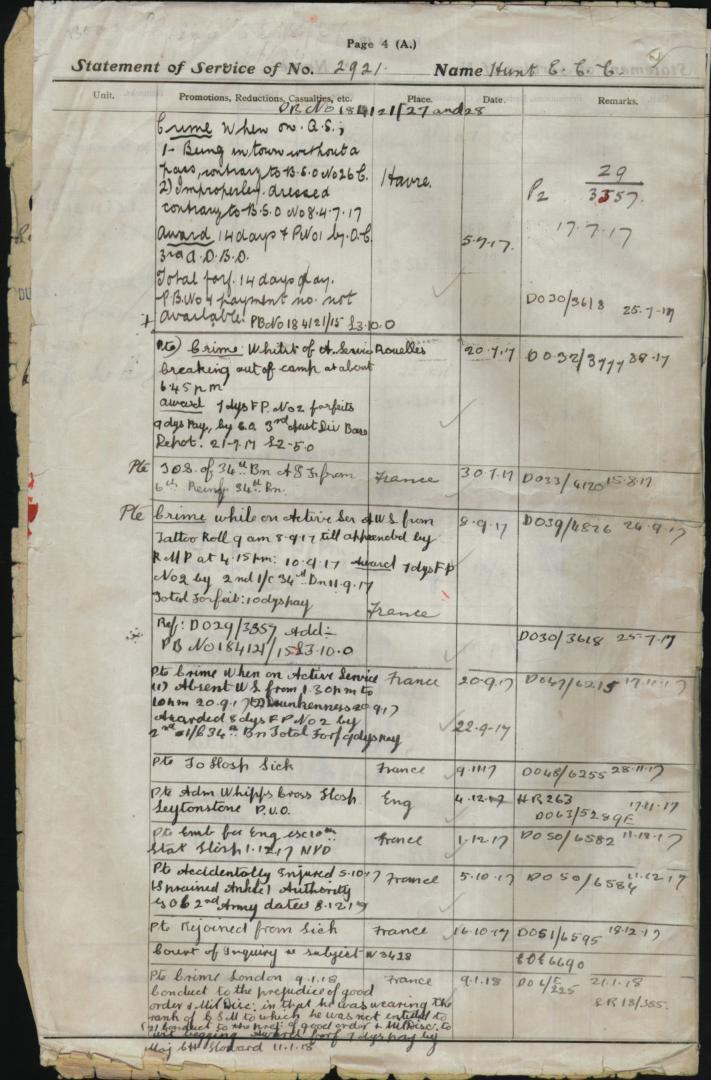 Page 4 (A.)
Statement of Service of No. 2921. Name Hunt E. C. C
Unit. Promotions, Reductions, Casualties, etc. Place. Date. Remarks.
PB No 184121/27 and 28
Crime When on A.S;
1- Being in town without a
pass, contrary to B.S.O No 26 C. Havre. P2 29/3357.
2) Improperley dressed
contrary to B.S.O No 8.4.7.17 17.7.17
Award 14 days F P. No1 by O.C. 5.7.17.
3rd A.D.B.D.
Total forf. 14 days pay.
P.B. No & payment no. not DO30/3618 25.7.17
available. PB No 184121/15 £3.10.0
Pte) Crime: Whilst of A. Service Rouelles 20.7.17 DO32/3977
breaking out of camp at about
6.45 pm
award 7 dys F P. No2 forfeits
9 dys Pay, by 3rd Aust Div Base
Depot. 21-7.17 £2-5.0
Pte T.O.S. of 34th Bn A I F from France 30.7.17 DO33/4120 15.8.17
6th Reinf. 34th Bn.
Pte Crime while on Active Ser A W L from 8.9.17 DO39/4826 24.9.17
Tattoo Roll 9 am 8.9.17 till apprehended by
R M P at 4.15 pm: 10.9.17 Award 7 dys F P
No2 by 2nd I/c 34th Bn 11.9.17
Total Forfeit: 10 dys pay France
Ref: DO29/3357 Add:- DO30/3618 25.7.17
PB No 184121/15 £3.10.0
Pte Crime When on Active Service France 20.9.17 DO47/6215 17.11.17
(1) Absent W L from 1.30 pm to
10 pm 20.9.17 (2) Drunkenness 20.9.17
Awarded 8 dys F P No2 by 22.9.17
2nd I/C 34th Bn Total Forf 9 dys pay
Pte To Hosp Sick France 9.11.17 DO48/6255 28.11.17
Pte Adm Whipps Cross Hosp Eng 4.12.17 HR263 17.11.17
Leytonstone P.U.O. DO63/5289E
Pte Emb for Eng ex 10th France 1.12.17 DO50/6582 11.12.17
Stat Hosp 1.12.17 NYD
Pte Accidentally Injured 5.10.17 France 5.10.17 DO50/6584 11.12.17
(Sprained Ankle) Authority
2nd Army dated 8.12.17
Pte Rejoined from Sick France 16.10.17 DO51/6595 18.12.17
Court of Inquiry re subject W3428 6690
Pte Crime London 9.1.18 France 9.1.18 DO 21.1.18
Conduct to the prejudice of good
order & Mil Disc: in that he was wearing the
rank of C S M to which he was not entitled to
(2) Conduct to the prej: of good order & Mil Disc: to
wit begging Award: forf 7 dys pay by
Maj Howard 11.1.18